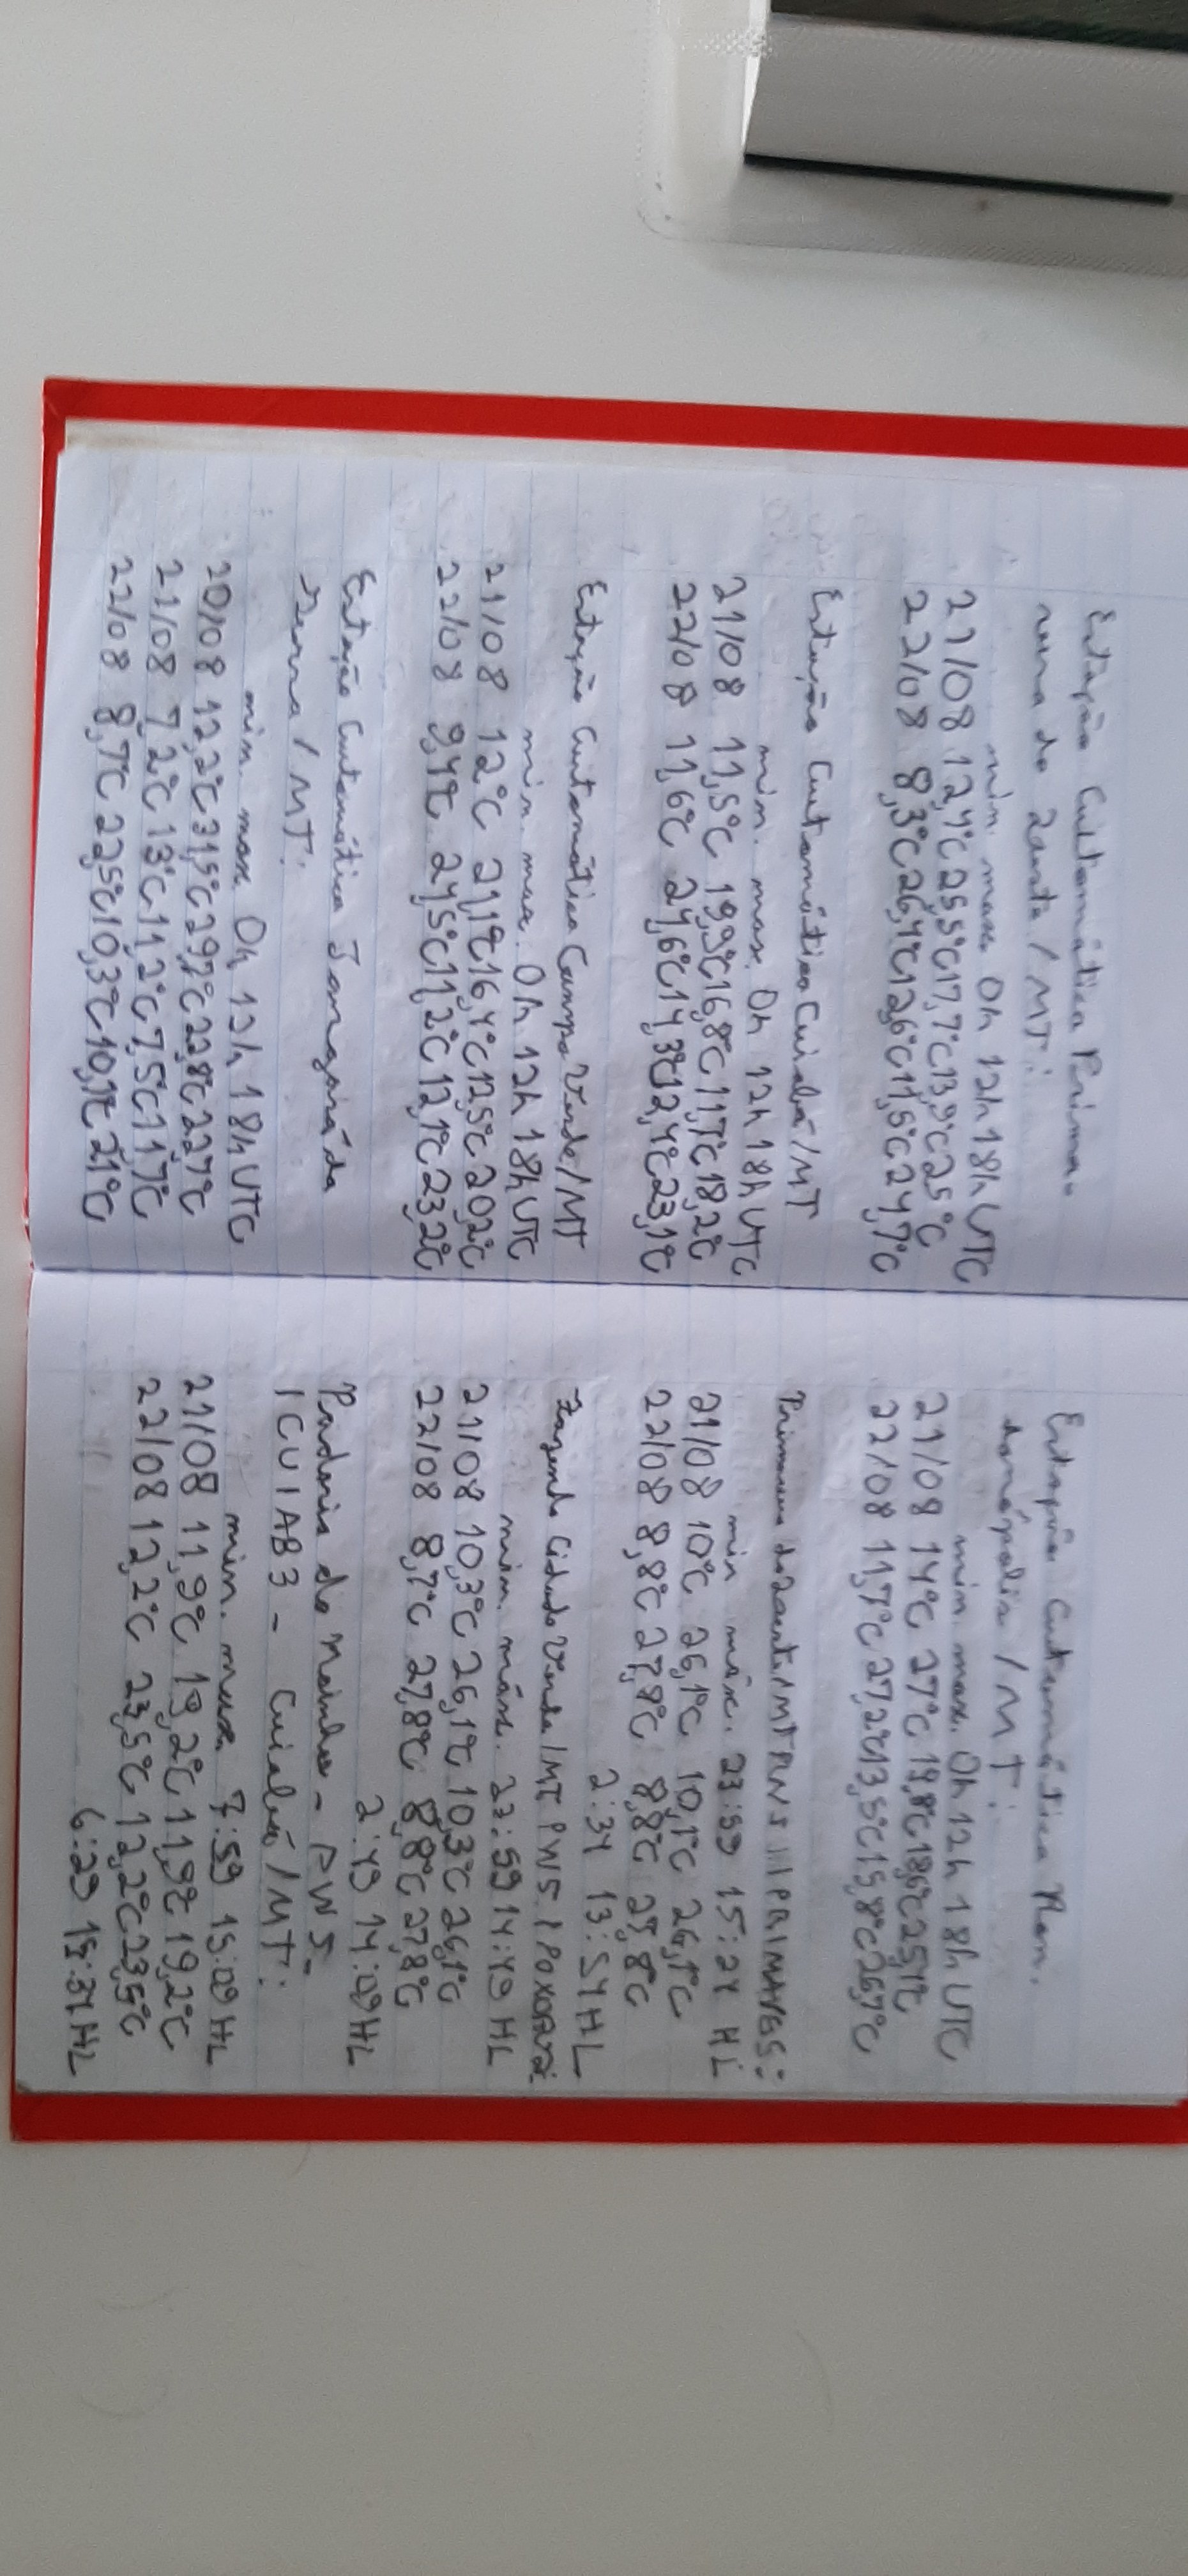 Estação Automática Prima-
vera do Leste/MT:
min. max. 0h 12h 18h UTC
21/08 12,4°C 25,5°C 17,7°C 13,9°C 25°C
22/08 8,3°C 26,4°C 12,6°C 11,5°C 24,7°C
Estação Automática Cuiabá/MT
min. max. 0h 12h 18h UTC
21/08 11,5°C 19,9°C 16,8°C 11,7°C 18,2°C
22/08 11,6°C 24,6°C 14,3°C 12,4°C 23,1°C
Estação Automática Campo Verde/MT
min. max. 0h 12h 18h UTC
21/08 12°C 21,1°C 16,4°C 12,5°C 20,2°C
22/08 9,4°C 24,5°C 11,2°C 12,1°C 23,2°C
Estação Automática Tangará da
Serra/MT:
min. max 0h 12h 18h UTC
20/08 12,2°C 31,5°C 29,7°C 22,8°C 22,7°C
21/08 7,2°C 13°C 11,2°C 7,5°C 11,7°C
22/08 8,7°C 22,5°C 10,3°C 10,1°C 21°C
Estação Automática Ron.
donópolis/MT:
min. max. 0h 12h 18h UTC
21/08 14°C 27°C 19,8°C 18,6°C 25,1°C
22/08 11,7°C 27,2°C 13,5°C 15,8°C 26,7°C
Primavera do Leste/MT PWS IIPRIMAV65:
min máx. 23:59 15:24 HL
21/08 10°C 26,1°C 10,1°C 26,1°C
22/08 8,8°C 27,8°C 8,8°C 27,8°C
2:34 13:54 HL
Fazenda Cidade Verde/MT PWS IPOXOR
min. máx. 23:59 14:49 HL
21/08 10,3°C 26,1°C 10,3°C 26,1°C
22/08 8,7°C 27,8°C 8,8°C 27,8°C
2:49 14:09 HL
Padaria do Moinho - PWS-
ICUIAB3 - Cuiabá/MT:
min. max. 7:59 15:09 HL
21/08 11,9°C 19,2°C 11,9°C 19,2°C
22/08 12,2°C 23,5°C 12,2°C 23,5°C
6:29 15:34 HL